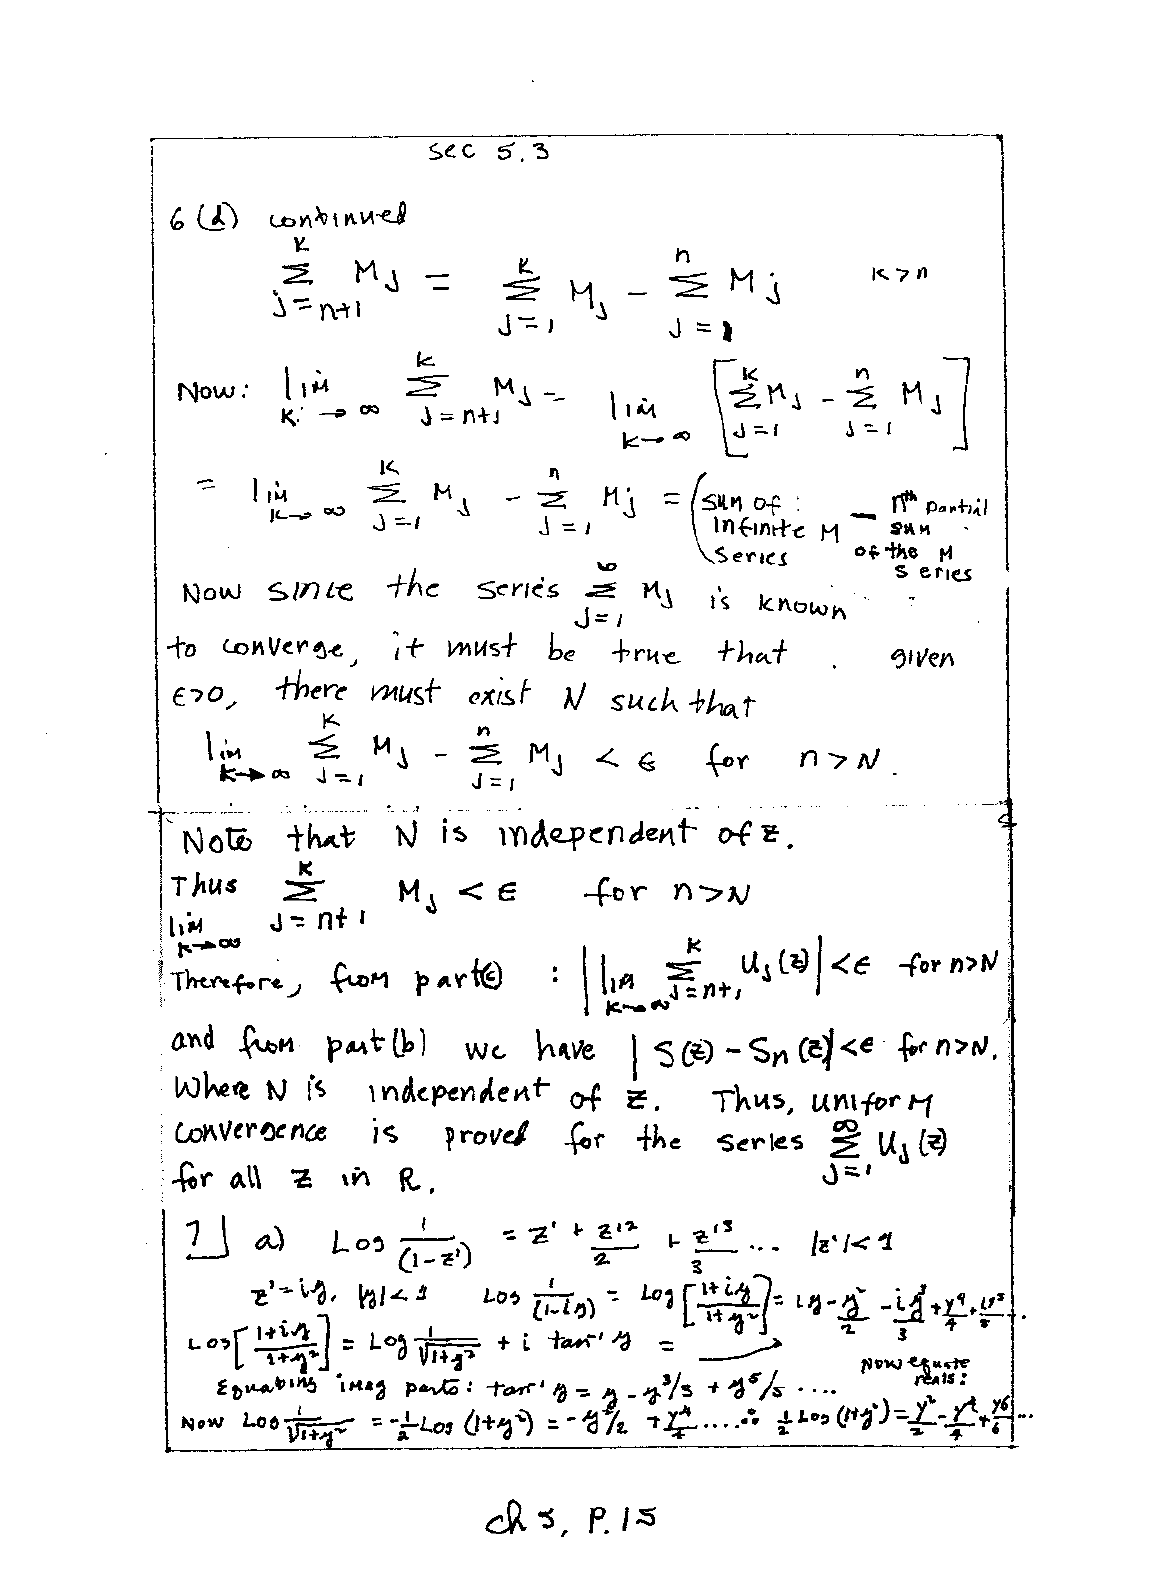 sec 5.3
6 (d) continued
∑_{j=n+1}^{K} M_j = ∑_{j=1}^{K} M_j − ∑_{j=1}^{n} M_j   K > n
Now: lim_{K→∞} ∑_{j=n+1}^{K} M_j = lim_{K→∞} [∑_{j=1}^{K} M_j − ∑_{j=1}^{n} M_j]
= lim_{K→∞} ∑_{j=1}^{K} M_j − ∑_{j=1}^{n} M_j = (sum of infinite M series − nth partial sum of the M series
Now since the series ∑_{j=1}^{∞} M_j is known
to converge, it must be true that . given
ε>0, there must exist N such that
lim_{K→∞} ∑_{j=1}^{K} M_j − ∑_{j=1}^{n} M_j < ε for n > N.
Note that N is independent of z.
Thus lim_{K→∞} ∑_{j=n+1}^{K} M_j < ε for n>N
Therefore, from part(c) : |lim_{K→∞} ∑_{j=n+1}^{K} u_j(z)| < ε for n>N
and from part(b) we have |S(z) − S_n(z)| < ε for n>N.
Where N is independent of z. Thus, uniform
convergence is proved for the series ∑_{j=1}^{∞} u_j(z)
for all z in R.
7] a) Log 1/(1−z') = z' + z'²/2 + z'³/3 ... |z'|<1
z'=iy, |y|<1 Log 1/(1−iy) = Log[(1+iy)/(1+y²)] = iy − y²/2 − iy³/3 + y⁴/4 + iy⁵/5 ...
Log[(1+iy)/(1+y²)] = Log 1/√(1+y²) + i tan⁻¹ y =
Equating imag parts: tan⁻¹ y = y − y³/3 + y⁵/5 .... Now equate reals:
Now Log 1/√(1+y²) = −½ Log (1+y²) = −y²/2 + y⁴/4 .... ∴ ½ Log (1+y²) = y²/2 − y⁴/4 + y⁶/6 ...
ch 5, P. 15